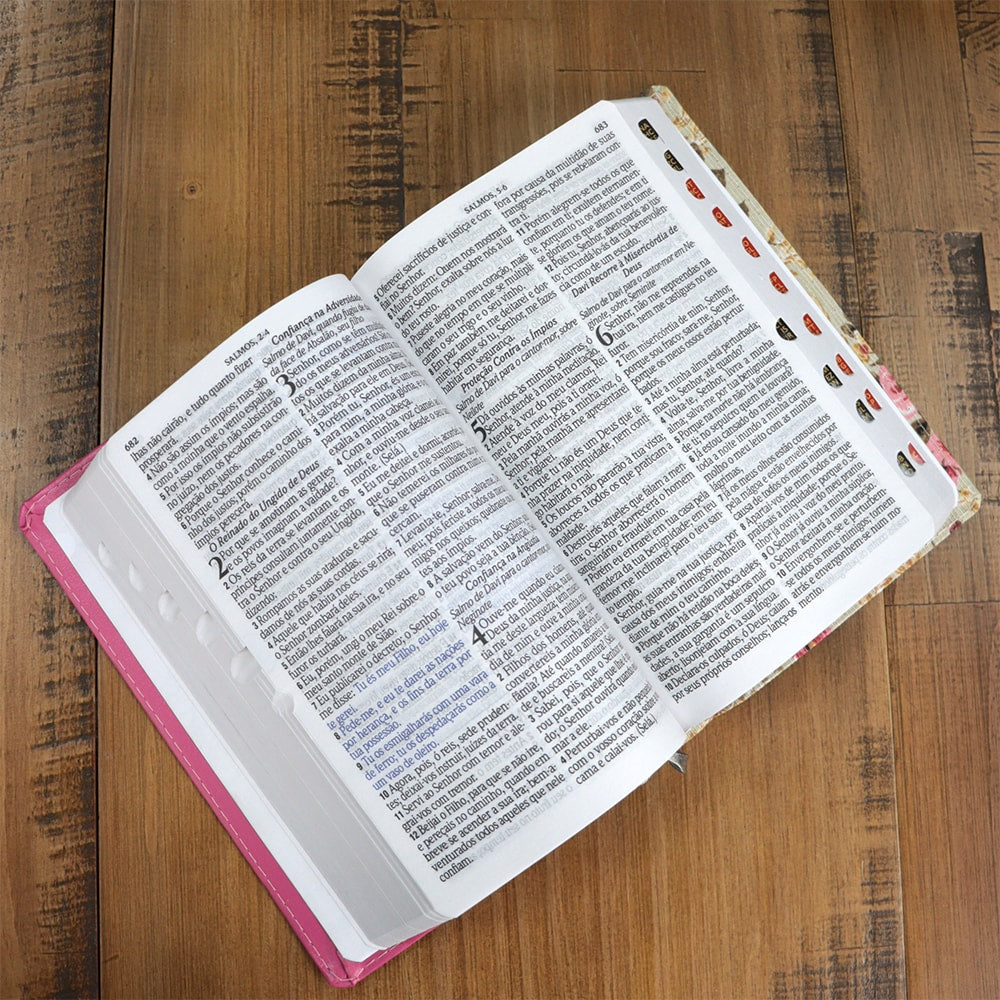 682
SALMOS, 2-4
has não cairão, e tudo quanto fizer
prosperará.
4 Não são assim os ímpios; mas são
como a moinha que o vento espalha.
5 Por isso os ímpios não subsistirão
no juízo, nem os pecadores na con-
gregação dos justos.
6 Porque o Senhor conhece o cami-
nho dos justos; porém o caminho dos
ímpios perecerá.
O Reinado do Ungido de Deus
2 Por que se amotinam as gentes,
e os povos imaginam a vaidade?
2 Os reis da terra se levantam e os
príncipes consultam juntamente con-
tra o Senhor e contra o seu Ungido,
dizendo:
3 Rompamos as suas ataduras e sacu-
damos de nós as suas cordas.
4 Aquele que habita nos céus se rirá;
o Senhor zombará deles.
5 Então lhes falará na sua ira, e no seu
furor os turbará.
6 Eu, porém, ungi o meu Rei sobre o
meu santo monte de Sião.
7 Eu publicarei o decreto; o Senhor
me disse: Tu és meu Filho, eu hoje
te gerei.
8 Pede-me, e eu te darei as nações
por herança, e os fins da terra por
tua possessão.
9 Tu os esmigalharás com uma vara
de ferro; tu os despedaçarás como a
um vaso de oleiro.
10 Agora, pois, ó reis, sede pruden-
tes, deixai-vos instruir, juízes da terra.
11 Servi ao Senhor com temor e ale-
grai-vos com tremor.
12 Beijai o Filho, para que se não ire,
e pereçais no caminho, quando em
breve se acender a sua ira; bem-a-
venturados todos aqueles que nele
confiam.
Confiança na Adversidade
Salmo de Davi, quando fugiu de
da face de Absalão, seu filho
3 Senhor, como se têm multi
os meus adversários!
2 Muitos dizem da minha
3 Porém tu, Senhor, és um
para mim, a minha glória, e o
exalta a minha cabeça.
4 Com a minha voz clamei ao
e ouviu-me desde o seu
monte. (Selá.)
5 Eu me deitei e dormi; acordei,
que o Senhor me sustentou.
6 Não temerei
que se puseram
cercam.
7 Levanta-te, Senhor; salva-me,
meu; pois feriste a todos os
migos nos queixos,
aos ímpios.
8 A salvação vem do Senhor;
o teu povo seja a tua
Confiança na Angústia
Salmo de Davi para o cantor-mor,
Neginote
4 Ouve-me quando eu clamo,
Deus da minha justiça;
2 Filhos dos homens,
converterеis a minha glória
fâmia? Até quando amareis
de e buscareis a mentira? (Selá.)
3 Sabei, pois, que o Senhor
rou para si aquele que lhe é
do; o Senhor ouvirá quando
mar a ele.
4 Perturbai-vos e não pequeis;
com o vosso coração sobre
cama e calai-vos. (Selá.)
SALMOS, 5-6
683
5 Oferecei sacrifícios de justiça e con-
fiai no Senhor.
6 Muitos dizem: Quem nos mostrará
o bem? Senhor, exalta sobre nós a luz
7 Puseste alegria no meu coração, mais
do que no tempo em que se multipli-
caram o seu trigo e o seu vinho.
8 Em paz também me deitarei e dor-
mirei, porque só tu, Senhor, me fazes
habitar em segurança.
Proteção Contra os Ímpios
Salmo de Davi para o cantor-mor, sobre
Neilote
5 Dá ouvidos às minhas palavras, ó
Senhor; atende à minha meditação.
2 Atende à voz do meu clamor, Rei
meu e Deus meu, pois a ti orarei.
3 Pela manhã ouvirás a minha voz, ó
Senhor; pela manhã me apresentarei
a ti, e vigiarei.
4 Porque tu não és um Deus que te-
nha prazer na iniquidade, nem con-
tigo habitará o mal.
5 Os loucos não pararão à tua vista;
aborreces a todos os que praticam a
maldade.
6 Destruirás aqueles que falam a men-
tira; o Senhor aborrecerá o homem
sanguinário e fraudulento.
7 Porém eu entrarei em tua casa pela
grandeza da tua benignidade; e em teu
temor me inclinarei para o teu santo
templo.
8 Senhor, guia-me na tua justiça, por
causa dos meus inimigos; endireita
diante de mim o teu caminho;
9 Porque não há retidão na boca deles;
as suas entranhas são verdadeiras mal-
dades, a sua garganta é um sepulcro
aberto; lisonjeiam com a sua língua.
10 Declara-os culpados, ó Deus; caiam
por seus próprios conselhos; lança-os
fora por causa da multidão de suas
transgressões, pois se rebelaram con-
tra ti.
11 Porém alegrem-se todos os que
confiam em ti; exultem eternamen-
te, porquanto tu os defendes; e em ti
se gloriem os que amam o teu nome.
12 Pois tu, Senhor, abençoarás ao jus-
to; circundá-lo-ás da tua benevolên-
cia como de um escudo.
Davi Recorre à Misericórdia de
Deus
Salmo de Davi para o cantor-mor em Ne-
ginote, sobre Seminite
6 Senhor, não me repreendas na
tua ira, nem me castigues no teu
furor.
2 Tem misericórdia de mim, Senhor,
porque sou fraco; sara-me, Senhor,
porque os meus ossos estão pertur-
bados.
3 Até a minha alma está perturbada;
mas tu, Senhor, até quando?
4 Volta-te, Senhor, livra a minha
alma; salva-me por tua benignidade.
5 Porque na morte não há lembrança
de ti; no sepulcro quem te louvará?
6 Já estou cansado do meu gemido,
toda a noite inundo a minha cama;
molho o meu leito com as minhas
lágrimas,
7 Já os meus olhos estão consumidos
pela mágoa e estão envelhecidos por
causa de todos os meus inimigos.
8 Apartai-vos de mim todos os que
praticais a iniquidade; porque o Se-
nhor já ouviu a voz do meu pranto.
9 O Senhor já ouviu a minha súplica;
o Senhor aceitará a minha oração.
10 Envergonhem-se e perturbem-
se todos os meus inimigos; tornem
atrás e envergonhem-se num mo-
mento.